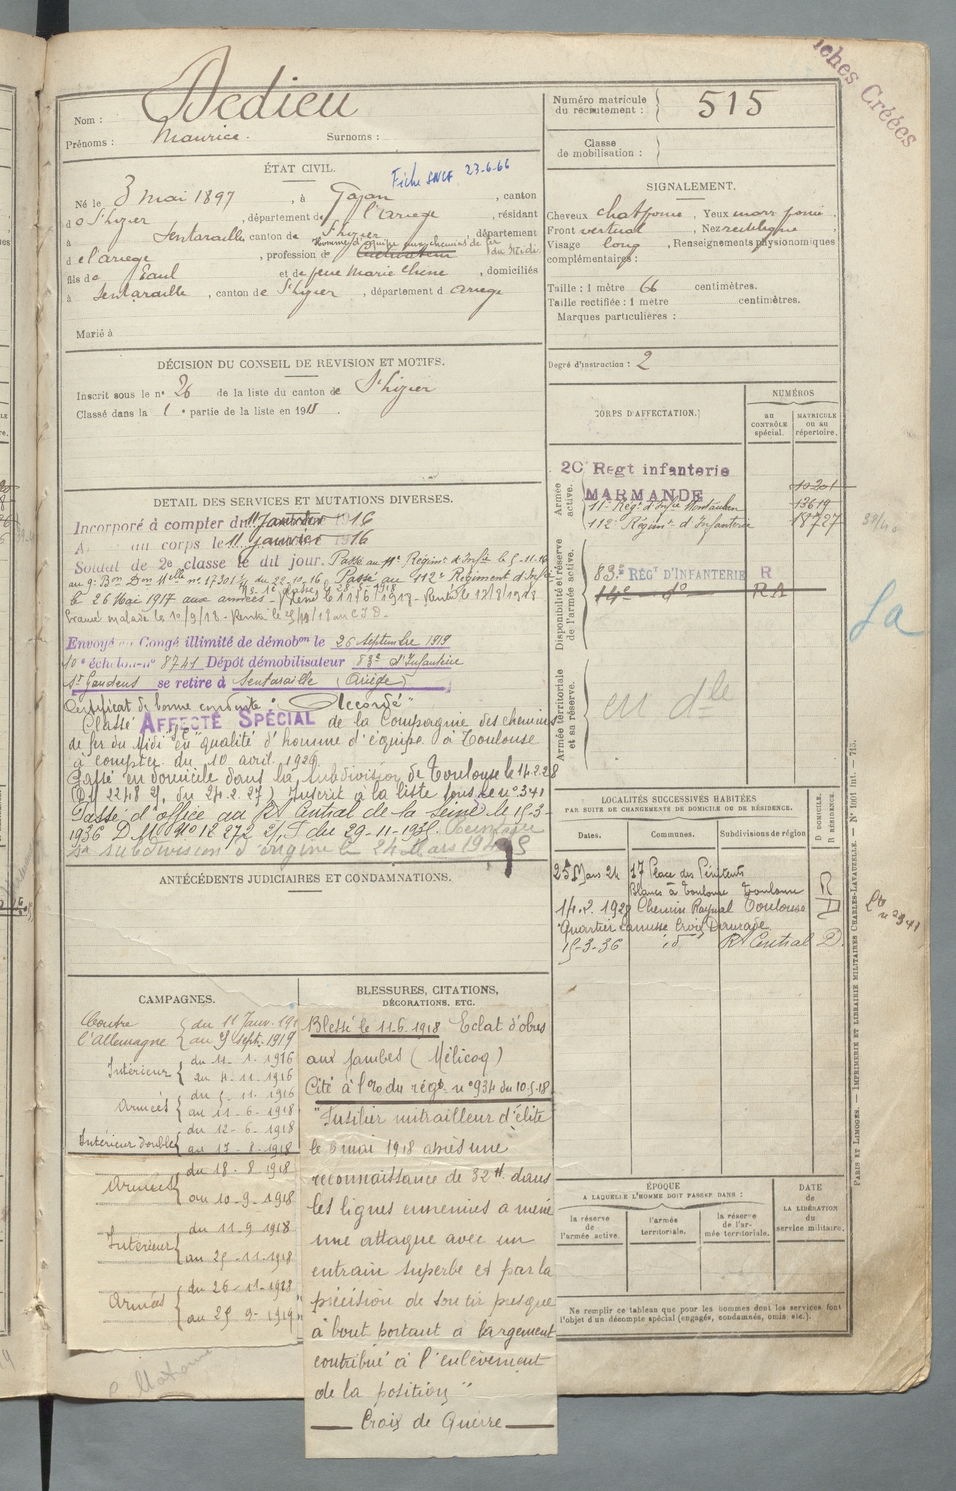 Nom : Dedieu
Prénoms : Maurice. Surnoms :
ÉTAT CIVIL.
Fiche SNCF 23-6-66
Né le 3 mai 1897, à Gajan, canton
d o St hizier, département de l'ariege, résidant
à Sentaraille, canton de St hizier, département
d e l'ariege, profession de homme d'équipe aux chemins de fer du Midi.
fils de Paul et de feue Marie Chene, domiciliés
à Sentaraille, canton de St hizier, département d Ariege
Marié à
DÉCISION DU CONSEIL DE REVISION ET MOTIFS.
Inscrit sous le n° 26 de la liste du canton de St hizier
Classé dans la 1 e partie de la liste en 1915.
DETAIL DES SERVICES ET MUTATIONS DIVERSES.
Incorporé à compter du 11 Janvier 1916
au corps le 11 Janvier 1916
Soldat de 2e classe le dit jour. Passé au 11e Régiment d'Infie le 5-11-16
Passé au 112e Régiment d'Infie
le 26 Mai 1917 aux armées
Evacué malade le 10/9/18 - Rentré le
Envoyé en Congé illimité de démobon le 26 septembre 1919
10e échelon n° 8741 Dépôt démobilisateur 83e d'Infanterie
St Gaudens se retire à Sentaraille (Ariège)
Certificat de bonne conduite "Accordé"
Classé AFFECTÉ SPÉCIAL de la Compagnie des chemins
de fer du Midi en qualité d'homme d'équipe à Toulouse
à compter du 10 avril 1920.
Passé en domicile dans la subdivision de Toulouse le 14.2.28
Inscrit à la liste sous le n° 341
Passé d'office au Rt Central de la Seine le 15-3-
1936 D.M. N° 12272 du 29-11-1935.
sa subdivision d'origine le 24 Mars 19
ANTÉCÉDENTS JUDICIAIRES ET CONDAMNATIONS.
CAMPAGNES.
Contre l'Allemagne { du 11 Janv. 191
au 25 Sept. 1919
Intérieur { du 11. 1. 1916
au 4. 11. 1916
Armées { du 5. 11. 1916
au 11 - 6 - 1918
Intérieur double { du 12 - 6 - 1918
au 17 - 8 - 1918
Armées { du 18 - 8 1918
au 10 - 9 - 1918
Intérieur { du 11 - 9 1918
au 25 - 11 - 1918
Armées { du 26 - 11 - 1918
au 25 9 - 1919
BLESSURES, CITATIONS,
DÉCORATIONS, ETC.
Blessé le 11-6. 1918 Eclat d'obus
aux jambes (Mélicoq)
Cité à l'o. du régt n° 934 du 10-5-18
"Fusilier mitrailleur d'élite
le 6 mai 1918 après une
reconnaissance de 32 H. dans
les lignes ennemies a mené
une attaque avec un
entrain superbe et par la
précision de son tir presque
à bout portant a largement
contribué à l'enlèvement
de la position"
Croix de Guerre
iches Créées
Numéro matricule du recrutement : } 515
Classe de mobilisation : }
SIGNALEMENT.
Cheveux chat foncé, Yeux marr foncé
Front vertical, Nez rectiligne,
Visage long, Renseignements physionomiques
complémentaires :
Taille : 1 mètre 66 centimètres.
Taille rectifiée : 1 mètre centimètres.
Marques particulières :
Degré d'instruction : 2
CORPS D'AFFECTATION.
NUMÉROS
AU CONTRÔLE spécial.
MATRICULE OU AU répertoire.
Armée active.
20 Regt infanterie
MARMANDE 10201
11e Régt d'Infie Montauban 13619
112e Régimt d'Infanterie 18727
Disponibilité et réserve de l'armée active.
83e RÉGT D'INFANTERIE R
14e do RA
Armée territoriale et sa réserve.
en dle
Sa
LOCALITÉS SUCCESSIVES HABITÉES
PAR SUITE DE CHANGEMENTS DE DOMICILE OU DE RÉSIDENCE.
D DOMICILE.
R RÉSIDENCE.
Dates. Communes. Subdivisions de région
25 Mars 24 17 Place des Pénitents
Blancs à Toulouse Toulouse R
14.2. 1928 Chemin Raynal Toulouse
Quartier Lamusse Croix Daurade
15-3-36 id Rt Central D
n° 341
ÉPOQUE
A LAQUELLE L'HOMME DOIT PASSER DANS :
la réserve de l'armée active.
l'armée territoriale.
la réserve de l'armée territoriale.
DATE de LA LIBÉRATION du service militaire.
Ne remplir ce tableau que pour les hommes dont les services font
l'objet d'un décompte spécial (engagés, condamnés, omis, etc.).
PARIS ET LIMOGES. — IMPRIMERIE ET LIBRAIRIE MILITAIRES CHARLES-LAVAUZELLE. — N° 1601 Int. — 715.